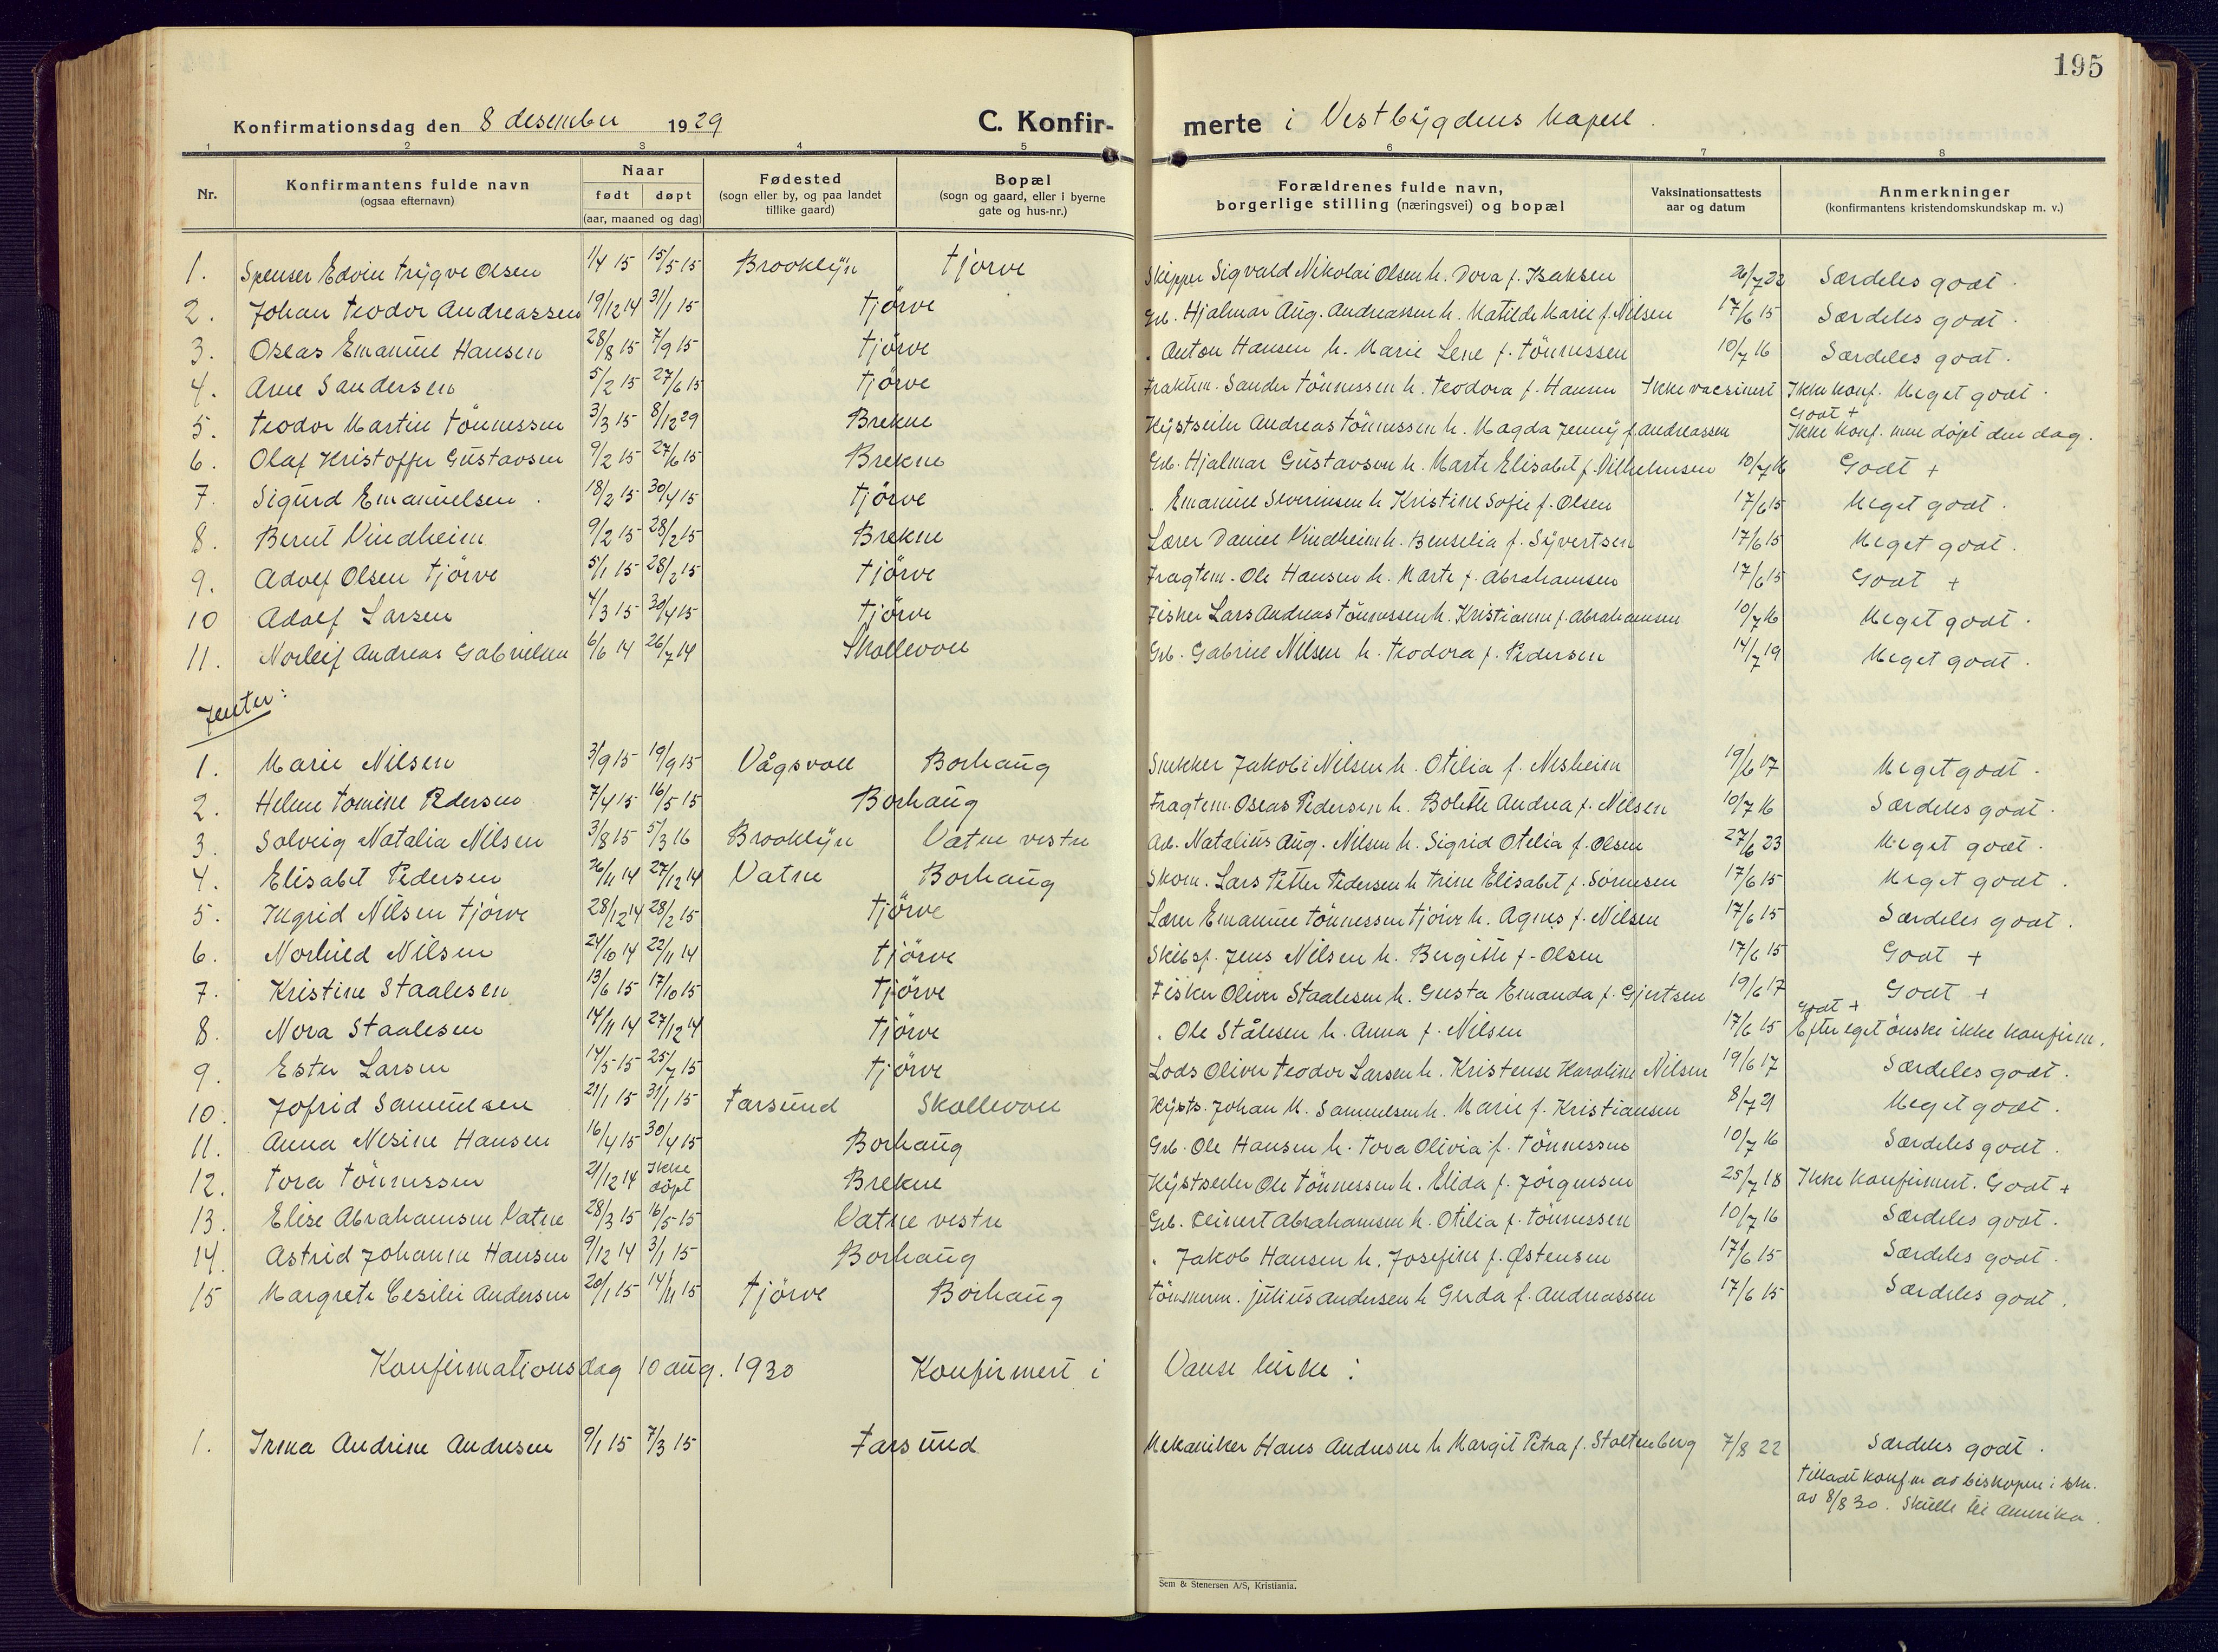 195
Konfirmationsdag den 8 desember 1929 C. Konfirmerte i Vestbygdens kapell.
1 2 3 4 5 6 7 8
Nr. Konfirmantens fulde navn (ogsaa efternavn) Naar født døpt (aar, maaned og dag) Fødested (sogn eller by, og paa landet tillike gaard) Bopæl (sogn og gaard, eller i byerne gate og hus-nr.) Forældrenes fulde navn, borgerlige stilling (næringsvei) og bopæl Vaksinationsattests aar og datum Anmerkninger (konfirmantens kristendomskundskap m. v.)
1. Spenser Edvin Trygve Olsen 1/4 15 15/5 15 Brooklyn Tjørve Skipper Sigvald Nikolai Olsen h. Dora f. Isaksen 26/7 22 Særdeles godt.
2. Johan Teodor Andreassen 19/12 14 31/1 15 Tjörve Grb. Hjalmar Aug. Andreassen h. Matilde Marie f. Nilsen 17/6 15 Særdeles godt.
3. Oseas Emanuel Hansen 28/8 15 7/9 15 Tjörve " Anton Hansen h. Marie Lene f. Tönnessen 10/7 16 Særdeles godt.
4. Arne Sandersen 5/2 15 27/6 15 Tjörve Fraktem. Sander Tönnessen h. Teodora f. Hansen Ikke vacsinert Ikke konf. Meget godt.
5. Teodor Martin Tönnessen 3/3 15 8/12 29 Brekne Kystseiler Andreas Tönnessen h. Magda Jenny f. Andreassen Godt + Ikke konf. men döpt den dag.
6. Olaf Kristoffer Gustavsen 9/2 15 27/6 15 Brekne Grb. Hjalmar Gustavsen h. Marte Elisabet f. Vilhelmsen 10/7 16 Godt +
7. Sigurd Emanuelsen. 18/2 15 30/4 15 Tjörve " Emanuel Severinsen h Kristine Sofie f. Olsen 17/6 15 Meget godt.
8. Bernt Vindheim 9/2 15 28/2 15 Brekne Lærer Daniel Vindheim h. Benselia f. Syvertsen 17/6 15 Meget godt.
9. Adolf Olsen Tjörve 5/1 15 28/2 15 Tjörve Fragtem. Ole Hansen h. Marte f. Abrahamsen 17/6 15 Godt +
10 Adolf Larsen 4/3 15 30/4 15 Tjörve Fisker Lars Andreas Tönnessen h. Kristianne f. Abrahamsen 10/7 16 Meget godt.
11. Norleif Andreas Gabrielsen 6/6 14 26/7 14 Skollevoll Grb. Gabriel Nilsen h. Teodora f. Pedersen 14/7 19 Meget godt.
Jenter:
1. Marie Nilsen 3/9 15 19/9 15 Vågsvoll Borhaug Snekker Jakob Nilsen h. Otilia f. Nesheim 19/6 17 Meget godt.
2. Helene Tomine Pedersen 7/4 15 16/5 15 Borhaug Fragtem. Oseas Pedersen h. Bolette Andrea f. Nilsen 10/7 16 Særdeles godt.
3. Solveig Natalia Nilsen 3/8 15 5/3 16 Brooklyn Vatne vestre Arb. Natalius Aug. Nilsen h. Sigrid Otelia f. Olsen 27/6 23 Meget godt.
4. Elisabet Pedersen 26/11 14 27/12 14 Vatne Borhaug Skom. Lars Petter Pedersen h Trine Elisabet f. Sörnesen 17/6 15 Meget godt.
5. Ingrid Nilsen Tjörve 28/12 14 28/2 15 Tjörve Lærer Emanuel Tönnessen Tjörve h. Agnes f. Nilsen 17/6 15 Særdeles godt.
6. Norhild Nilsen 24/10 14 22/11 14 Tjörve Skibsf. Jens Nilsen h. Bergitte f. Olsen 17/6 15 Godt +
7. Kristine Staalesen 13/6 15 17/10 15 Tjörve Fisker Oliver Staalesen h. Gusta Emanda f. Gjertsen 19/6 17 Godt +
8. Nora Staalesen 14/11 14 27/12 14 Tjörve " Ole Stålesen h. Anna f. Nilsen 17/6 15 Godt + Efter eget önske ikke konfirm.
9. Ester Larsen 14/5 15 25/7 15 Tjörve Lods Oliver Teodor Larsen h. Kristense Karoline Nilsen 19/6 17 Særdeles godt.
10. Jofrid Samuelsen 21/1 15 31/1 15 Farsund Skollevoll Kysts. Johan M. Samuelsen h. Marie f. Kristiansen 8/7 21 Meget godt.
11. Anna Nesine Hansen 16/4 15 30/4 15 Borhaug Grb. Ole Hansen h. Tora Olivia f. Tönnessen 10/7 16 Særdeles godt.
12. Tora Tönnessen 21/12 14 Ikke döpt Brekne Kystseiler Ole Tönnessen h. Elida f. Jörgensen 25/7 18 Ikke konfirmert. Godt +
13. Elise Abrahamsen Vatne 28/3 15 16/5 15 Vatne vestre Grb. Reinert Abrahamsen h. Otilia f. Tönnessen 10/7 16 Særdeles godt.
14. Astrid Johanne Hansen 9/12 14 3/1 15 Borhaug " Jakob Hansen h. Josefine f. Østensen 17/6 15 Særdeles godt.
15 Margrete Cesilie Andersen 20/1 15 14/11 15 Tjörve Borhaug Tömmerm. Julius Andersen h Gerda f. Andreassen 17/6 15 Særdeles godt.
Konfirmationsdag 10 aug. 1930 Konfirmert i Vanse kirke:
1. Irma Andrine Andresen 9/1 15 7/3 15 Farsund Mekaniker Hans Andresen h Margit Petra f. Stoltenberg 7/8 22 Særdeles godt.
Tilladt konf. av biskopen i skr.
av 8/8 30. Skulde til Amerika.
Sem & Stenersen A/S, Kristiania.